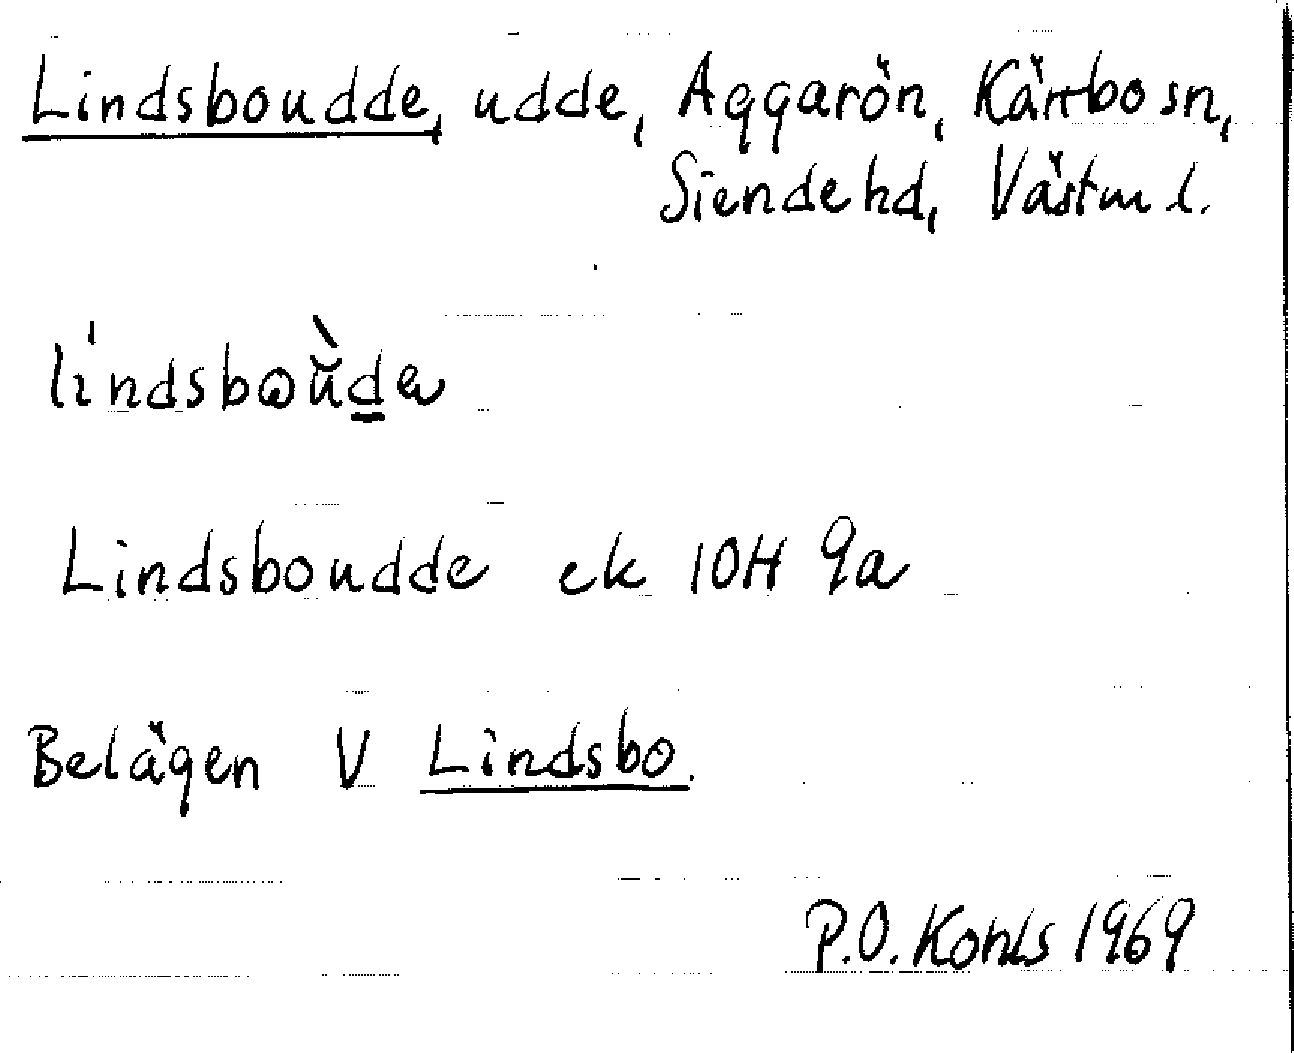 Lindsboudde, udde, Aggarön, Kärrbo sn,
Siende hd, Västml.
Lindsboudde ek 10H 9a
Belägen V Lindsbo.
P.O. Kohls 1969